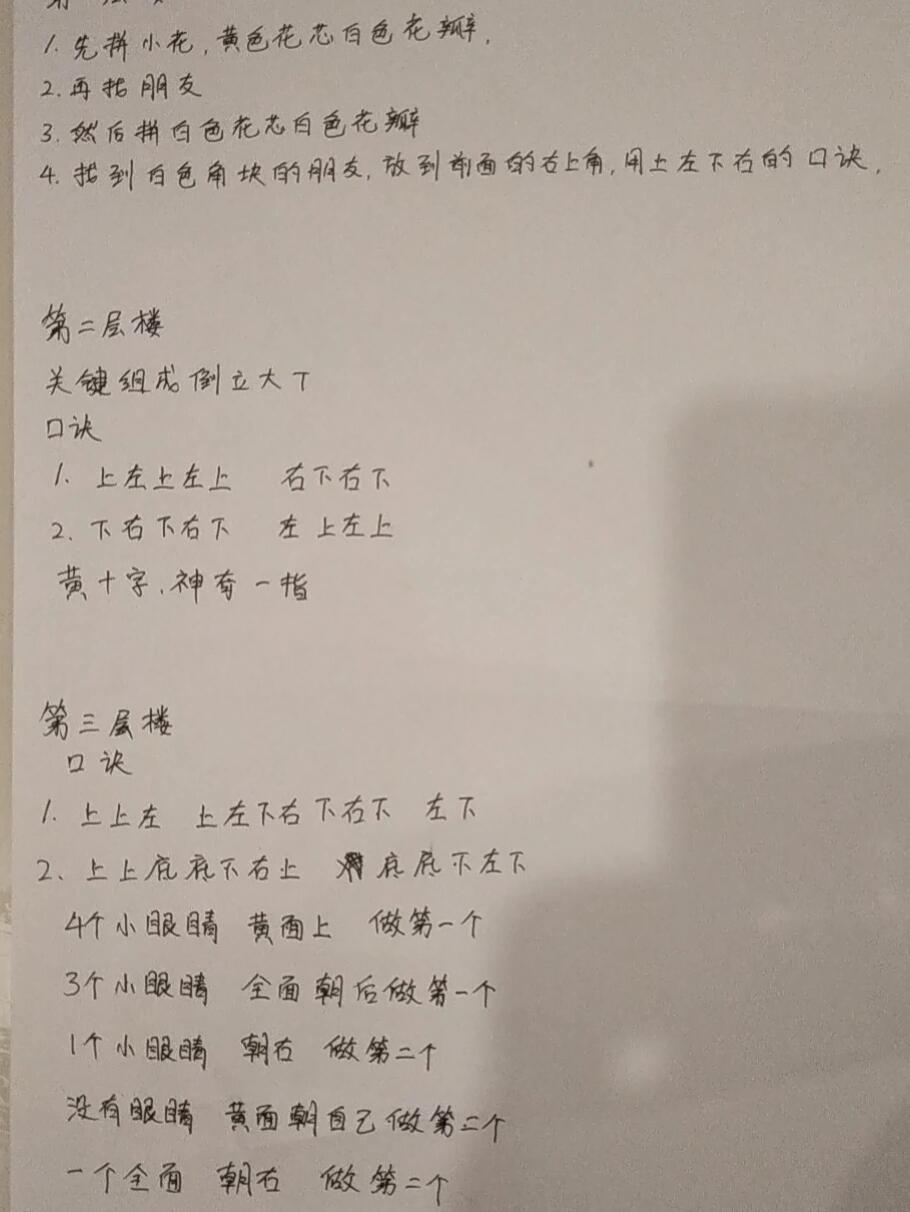 1. 先拼小花, 黄色花芯白色花瓣.
2. 再找朋友
3. 然后拼白色花芯白色花瓣
4. 找到白色角块的朋友, 放到前面的右上角, 用上左下右的口诀.
第二层楼
关键组成倒立大T
口诀
1. 上左上左上 右下右下
2. 下右下右下 左上左上
黄十字. 神奇一指
第三层楼
口诀
1. 上上左 上左下右下右下 左下
2. 上上底底下右上 底底下左下
4个小眼睛 黄面上 做第一个
3个小眼睛 全面朝后做第一个
1个小眼睛 朝右 做第二个
没有眼睛 黄面朝自己做第二个
一个全面 朝右 做第二个